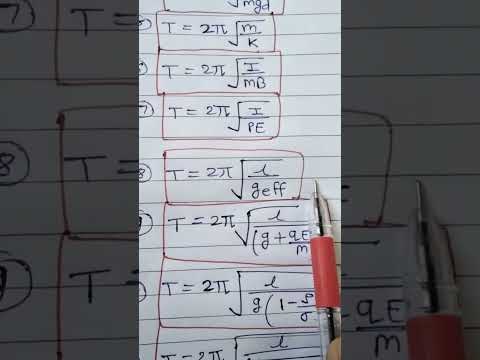 √mgd
T = 2π √m/K
T = 2π √I/MB
7) T = 2π √I/PE
8) T = 2π √l/geff
T = 2π √l/(g + qE/m
T = 2π √l/g(1 -
T = 2π √l